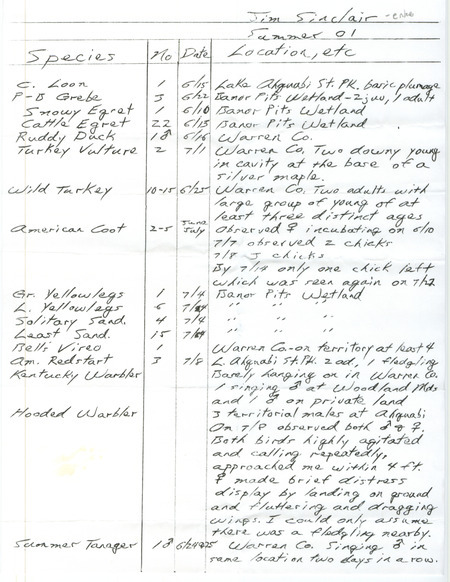 Jim Sinclair
Summer 01
Species No Date Location, etc
C. Loon 1 6/15 Lake Ahquabi St. Pk. basic plumage
P-B Grebe 3 6/22 Banor Pits Wetland - 2 juv, 1 adult
Snowy Egret 1 6/10 Banor Pits Wetland
Cattle Egret 22 6/13 Banor Pits Wetland
Ruddy Duck 1♂ 6/16 Warren Co.
Turkey Vulture 2 7/1 Warren Co. Two downy young
in cavity at the base of a
silver maple.
Wild Turkey 10-15 6/25 Warren Co. Two adults with
large group of young of at
least three distinct ages
American Coot 2-5 June July Observed ♀ incubating on 6/10
7/7 observed 2 chicks
7/8 3 chicks
By 7/14 only one chick left
which was seen again on
Gr. Yellowlegs 1 7/4 Banor Pits Wetland
L. Yellowlegs 6 " " "
Solitary Sand. 4 7/4 " " "
Least Sand. 15 " " "
Bell's Vireo 1 Warren Co - on territory at least 4
Am. Redstart 3 7/8 L. Ahquabi St. Pk. 2 ad, 1 fledgling
Kentucky Warbler Barely hanging on in Warren Co.
1 singing ♂ at Woodland Mds
and 1 ♂ on private land
Hooded Warbler 3 territorial males at Ahquabi
On 7/8 observed both ♂ & ♀.
Both birds highly agitated
and calling repeatedly,
approached me within 4 ft.
♀ made brief distress
display by landing on ground
and fluttering and dragging
wings. I could only assume
there was a fledgling nearby.
Summer Tanager 1♂ 6/24&25 Warren Co. Singing ♂ in
same location two days in a row.